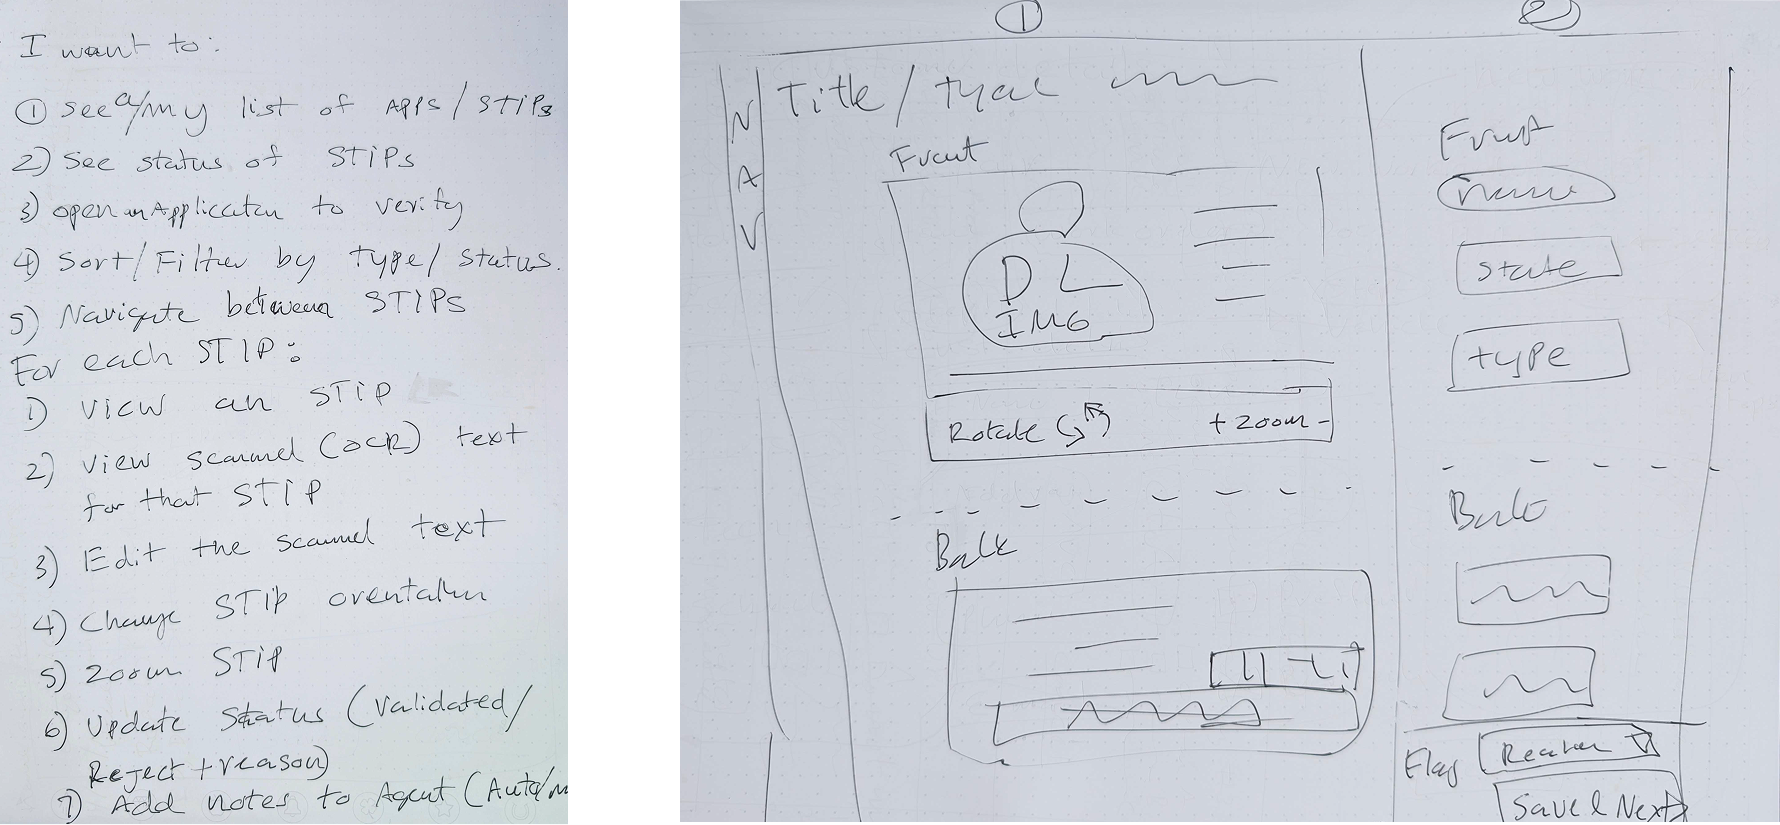 I want to:
① see a/my list of APPS / STIPs
2) See status of STIPs
3) open an Application to verify
4) Sort/Filter by type/status.
5) Navigate between STIPS
For each STIP:
1) View an STIP
2) View scanned (OCR) text
for that STIP
3) Edit the scanned text
4) Change STIP orentation
5) Zoom STIP
6) Update Status (Validated/
Reject + reason)
7) Add notes to Agent (Auto/m
①
②
NAV
Title / type
Front
DL
IMG
Rotate + zoom -
Back
Front
name
state
type
Back
Flag
Save & Next